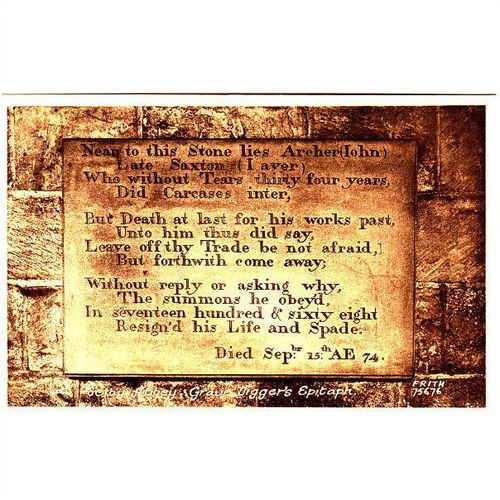 Near to this Stone lies Archer (John)
Late Saxton (I aver)
Who without Tears thirty four years,
Did Carcases inter,
But Death at last for his works past,
Unto him thus did say,
Leave off thy Trade be not afraid,]
But forthwith come away;
Without reply or asking why,
The summons he obey'd,
In seventeen hundred & sixty eight
Resign'd his Life and Spade.
Died Sepbr 15th AE 74.
Selby Abbey, Grave Digger's Epitaph.
FRITH
75676